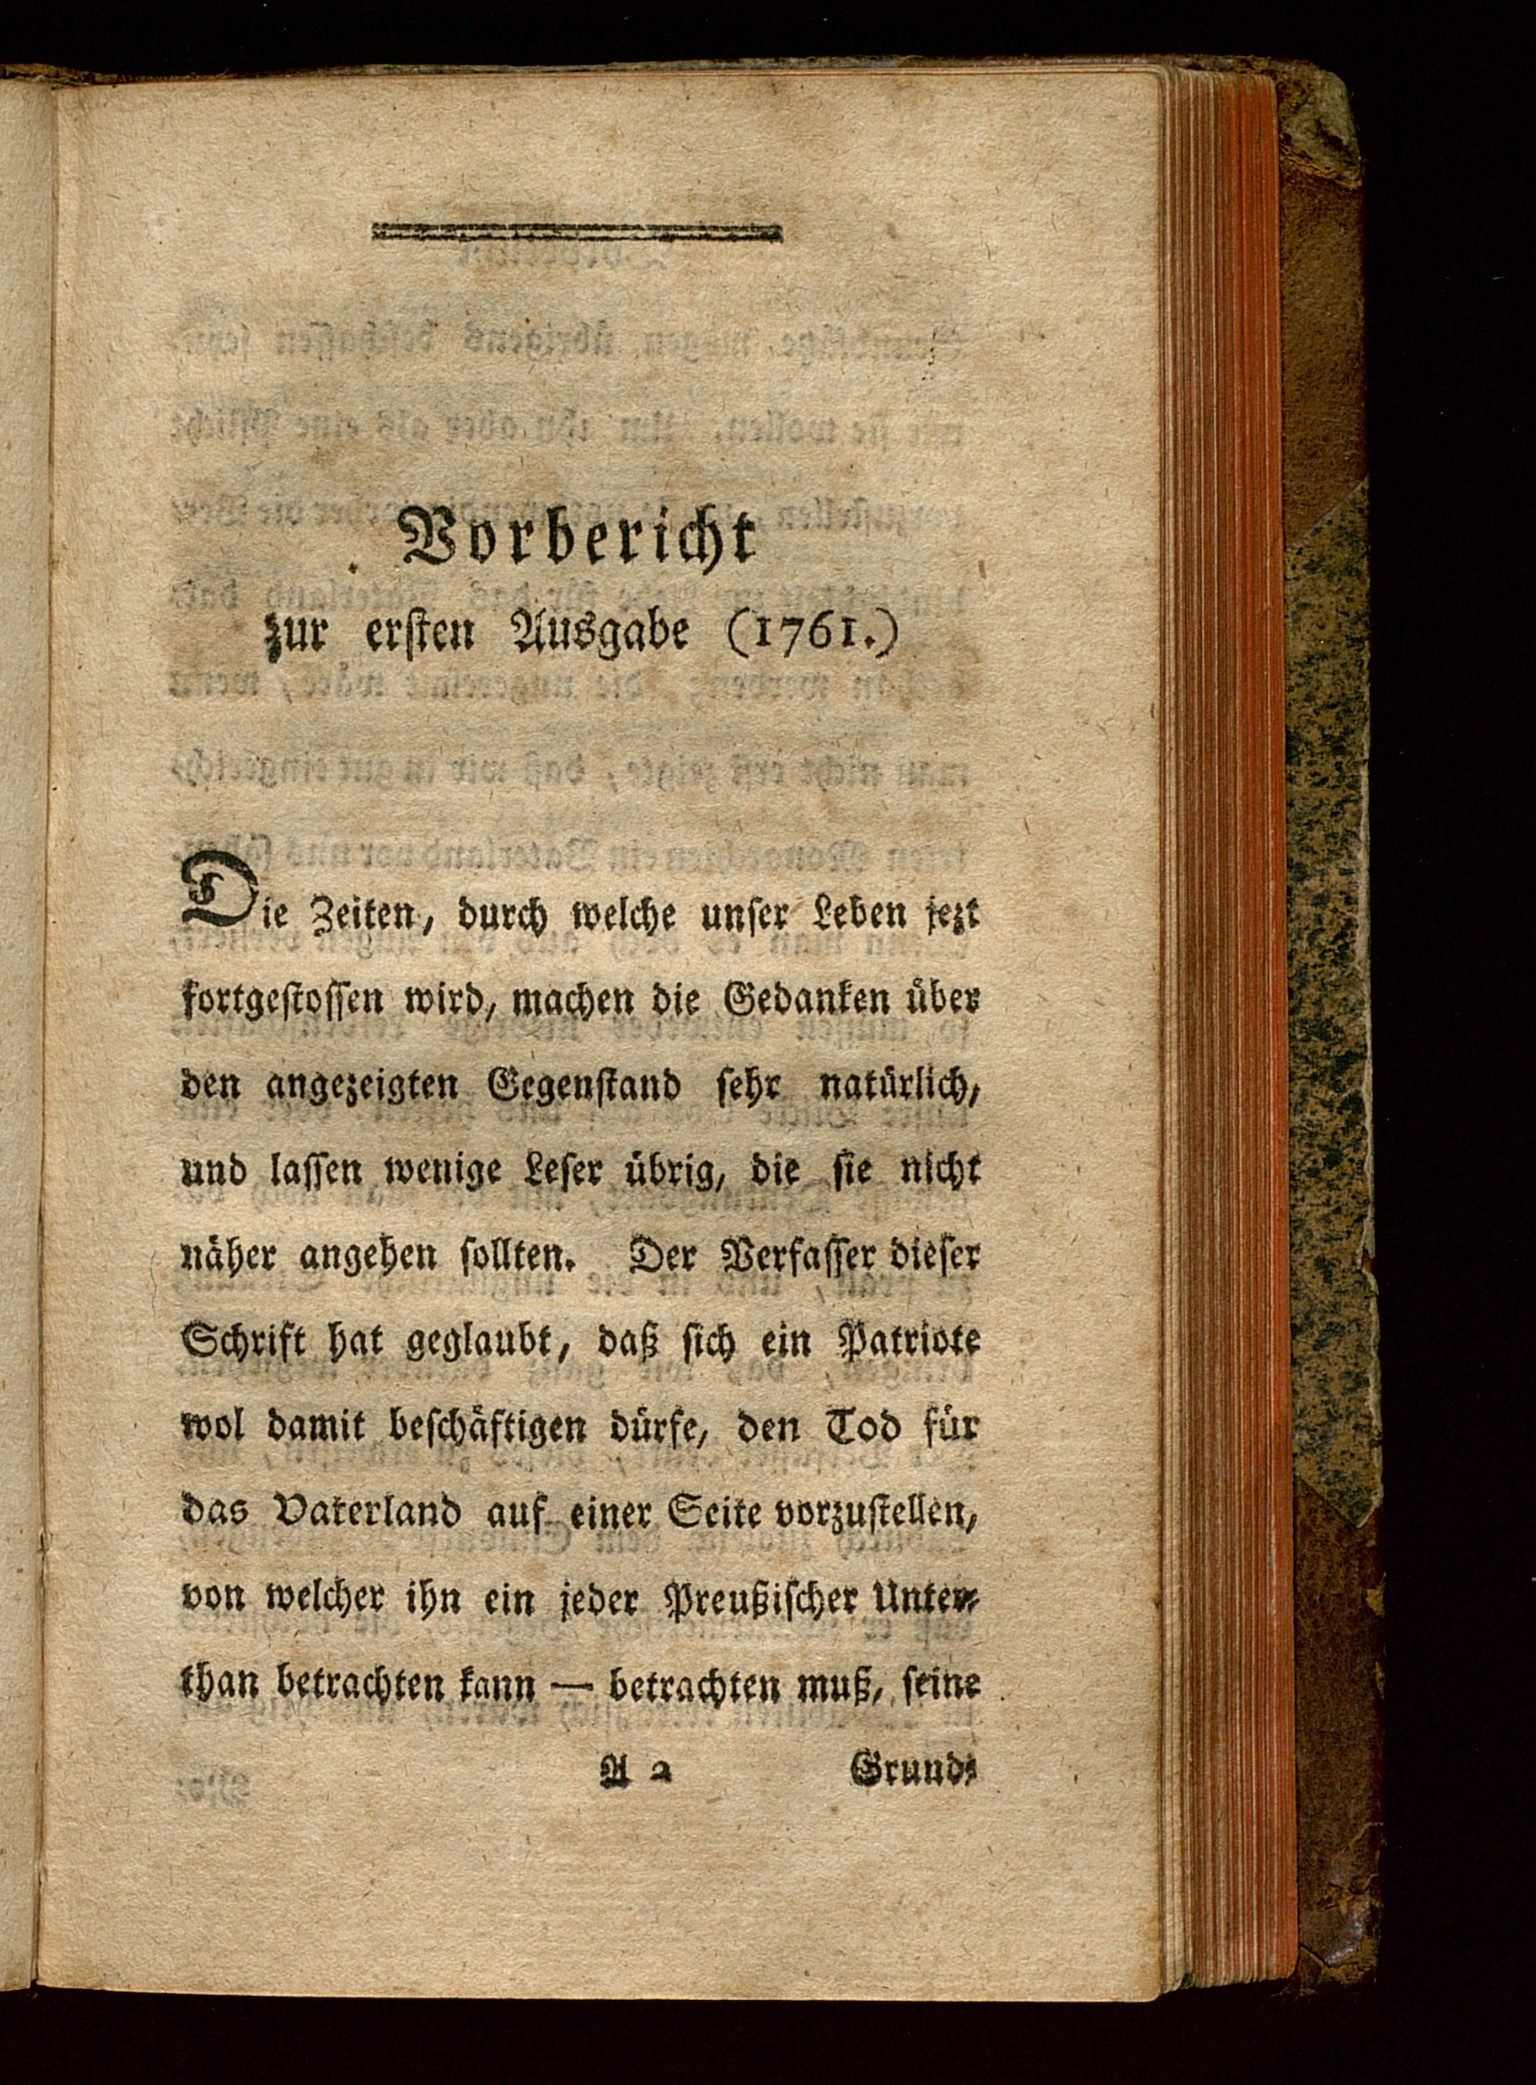 Vorbericht
zur erſten Ausgabe (1761.)
Die Zeiten, durch welche unſer Leben jezt
fortgeſtoſſen wird, machen die Gedanken über
den angezeigten Gegenſtand ſehr natürlich,
und laſſen wenige Leſer übrig, die ſie nicht
näher angehen ſollten. Der Verfaſſer dieſer
Schrift hat geglaubt, daß ſich ein Patriote
wol damit beſchäftigen dürfe, den Tod für
das Vaterland auf einer Seite vorzuſtellen,
von welcher ihn ein jeder Preußiſcher Unter⸗
than betrachten kann — betrachten muß, ſeine
A 2 Grund⸗